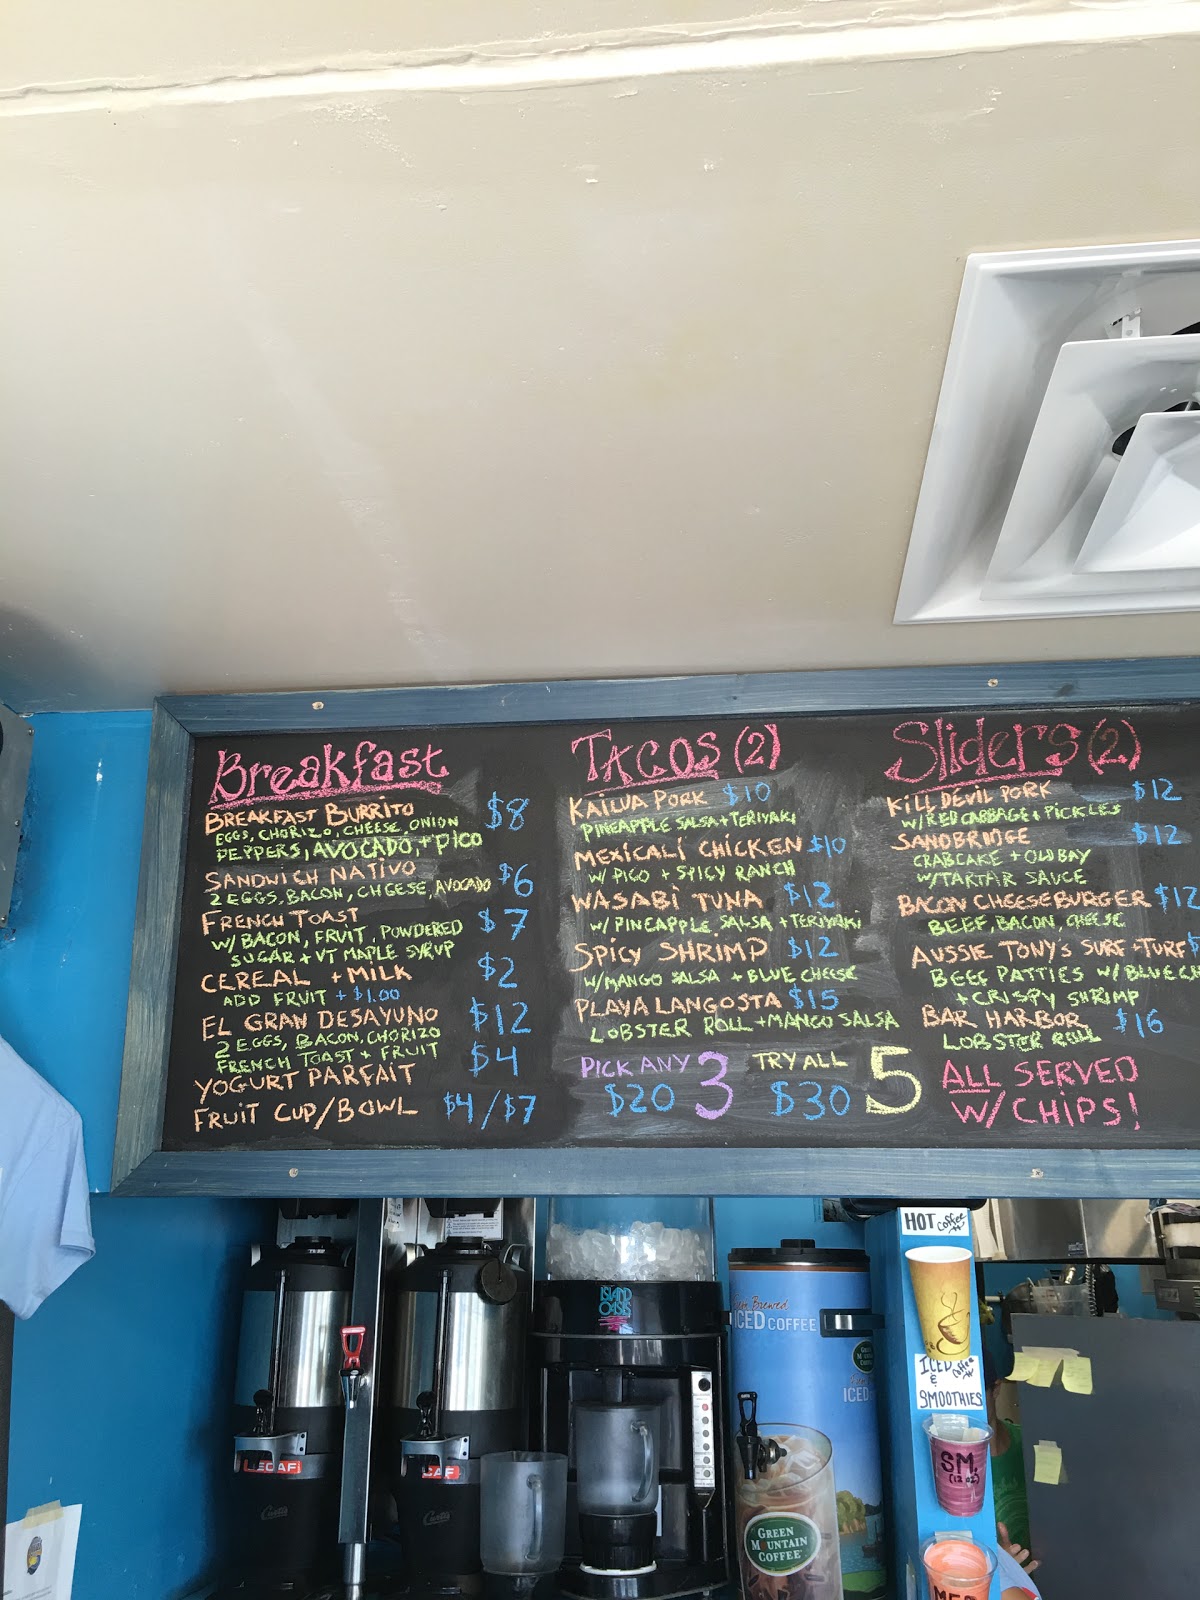 Breakfast
BREAKFAST BURRITO $8
EGGS, CHORIZO, CHEESE, ONION
PEPPERS, AVOCADO, + PICO
SANDWICH NATIVO $6
2 EGGS, BACON, CHEESE, AVOCADO
FRENCH TOAST $7
W/ BACON, FRUIT, POWDERED
SUGAR + VT MAPLE SYRUP
CEREAL + MILK $2
ADD FRUIT + $1.00
EL GRAN DESAYUNO $12
2 EGGS, BACON, CHORIZO
FRENCH TOAST + FRUIT
YOGURT PARFAIT $4
FRUIT CUP/BOWL $4/$7
TACOS (2)
KAILUA PORK $10
PINEAPPLE SALSA + TERIYAKI
MEXICALI CHICKEN $10
W/ PICO + SPICY RANCH
WASABI TUNA $12
W/ PINEAPPLE SALSA + TERIYAKI
SPICY SHRIMP $12
W/ MANGO SALSA + BLUE CHEESE
PLAYA LANGOSTA $15
LOBSTER ROLL + MANGO SALSA
PICK ANY 3
$20
TRY ALL 5
$30
Sliders (2)
KILL DEVIL PORK $12
W/ RED CABBAGE + PICKLES
SANDBRIDGE $12
CRABCAKE + OLD BAY
W/ TARTAR SAUCE
BACON CHEESEBURGER $12
BEEF, BACON, CHEESE
AUSSIE TONY'S SURF + TURF $
BEEF PATTIES W/ BLUE CH
+ CRISPY SHRIMP
BAR HARBOR $16
LOBSTER ROLL
ALL SERVED
W/ CHIPS!
HOT Coffee
ICED Coffee
&
SMOOTHIES
SM.
(12 oz)
MED
ISLAND
OASIS
Brewed
ICED COFFEE
ICED
GREEN
MOUNTAIN
COFFEE
DECAF
CAF
Curtis
Curtis